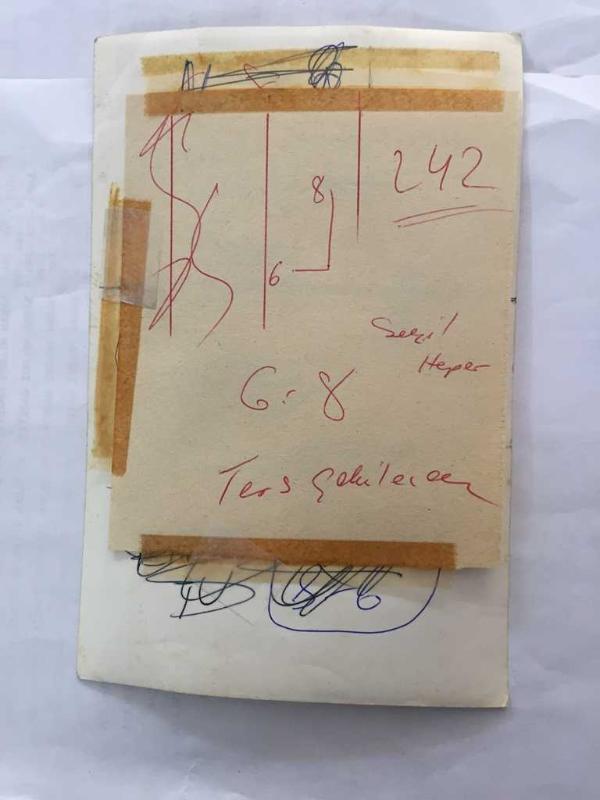 242
8
6
Heper
6:8
Ters Çekilecek
6